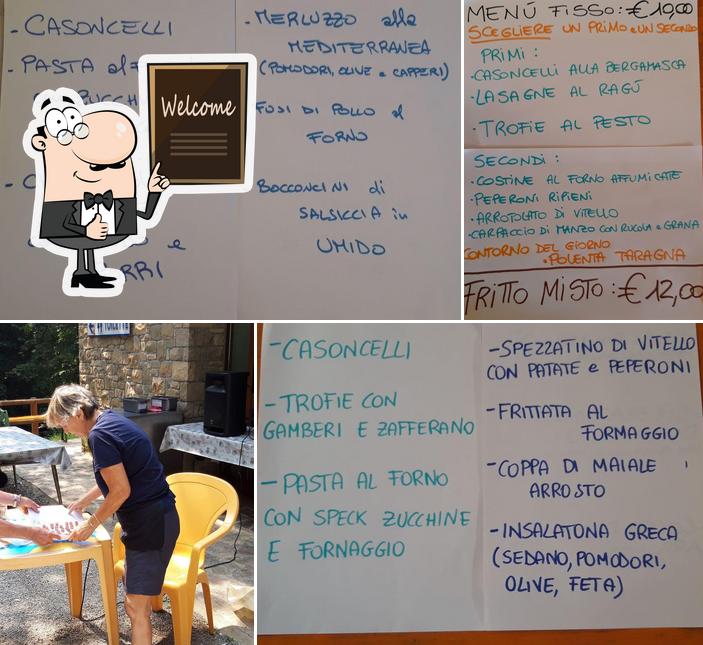 - CASONCELLI
- PASTA al
Welcome
RRI
- MERLUZZO alla
MEDITERRANEA
(POMODORI, OLIVE e CAPPERI)
FUSI DI POLLO al
FORNO
BOCCONCINI di
SALSICCIA in
UMIDO
MENÚ FISSO: € 10,00
SCEGLIERE UN PRIMO e UN SECONDO
PRIMI :
• CASONCELLI ALLA BERGAMASCA
• LASAGNE AL RAGÚ
• TROFIE AL PESTO
SECONDI :
• COSTINE AL FORNO AFFUMICATE
• PEPERONI RIPIENI
• ARROTOLATO DI VITELLO
• CARPACCIO DI MANZO CON RUCOLA e GRANA
CONTORNO DEL GIORNO
• POLENTA TARAGNA
FRITTO MISTO : € 12,00
- CASONCELLI
- TROFIE CON
GAMBERI E ZAFFERANO
- PASTA AL FORNO
CON SPECK ZUCCHINE
E FORNAGGIO
- SPEZZATINO DI VITELLO
CON PATATE e PEPERONI
- FRITTATA AL
FORMAGGIO
- COPPA DI MAIALE
ARROSTO
- INSALATONA GRECA
(SEDANO, POMODORI,
OLIVE, FETA)